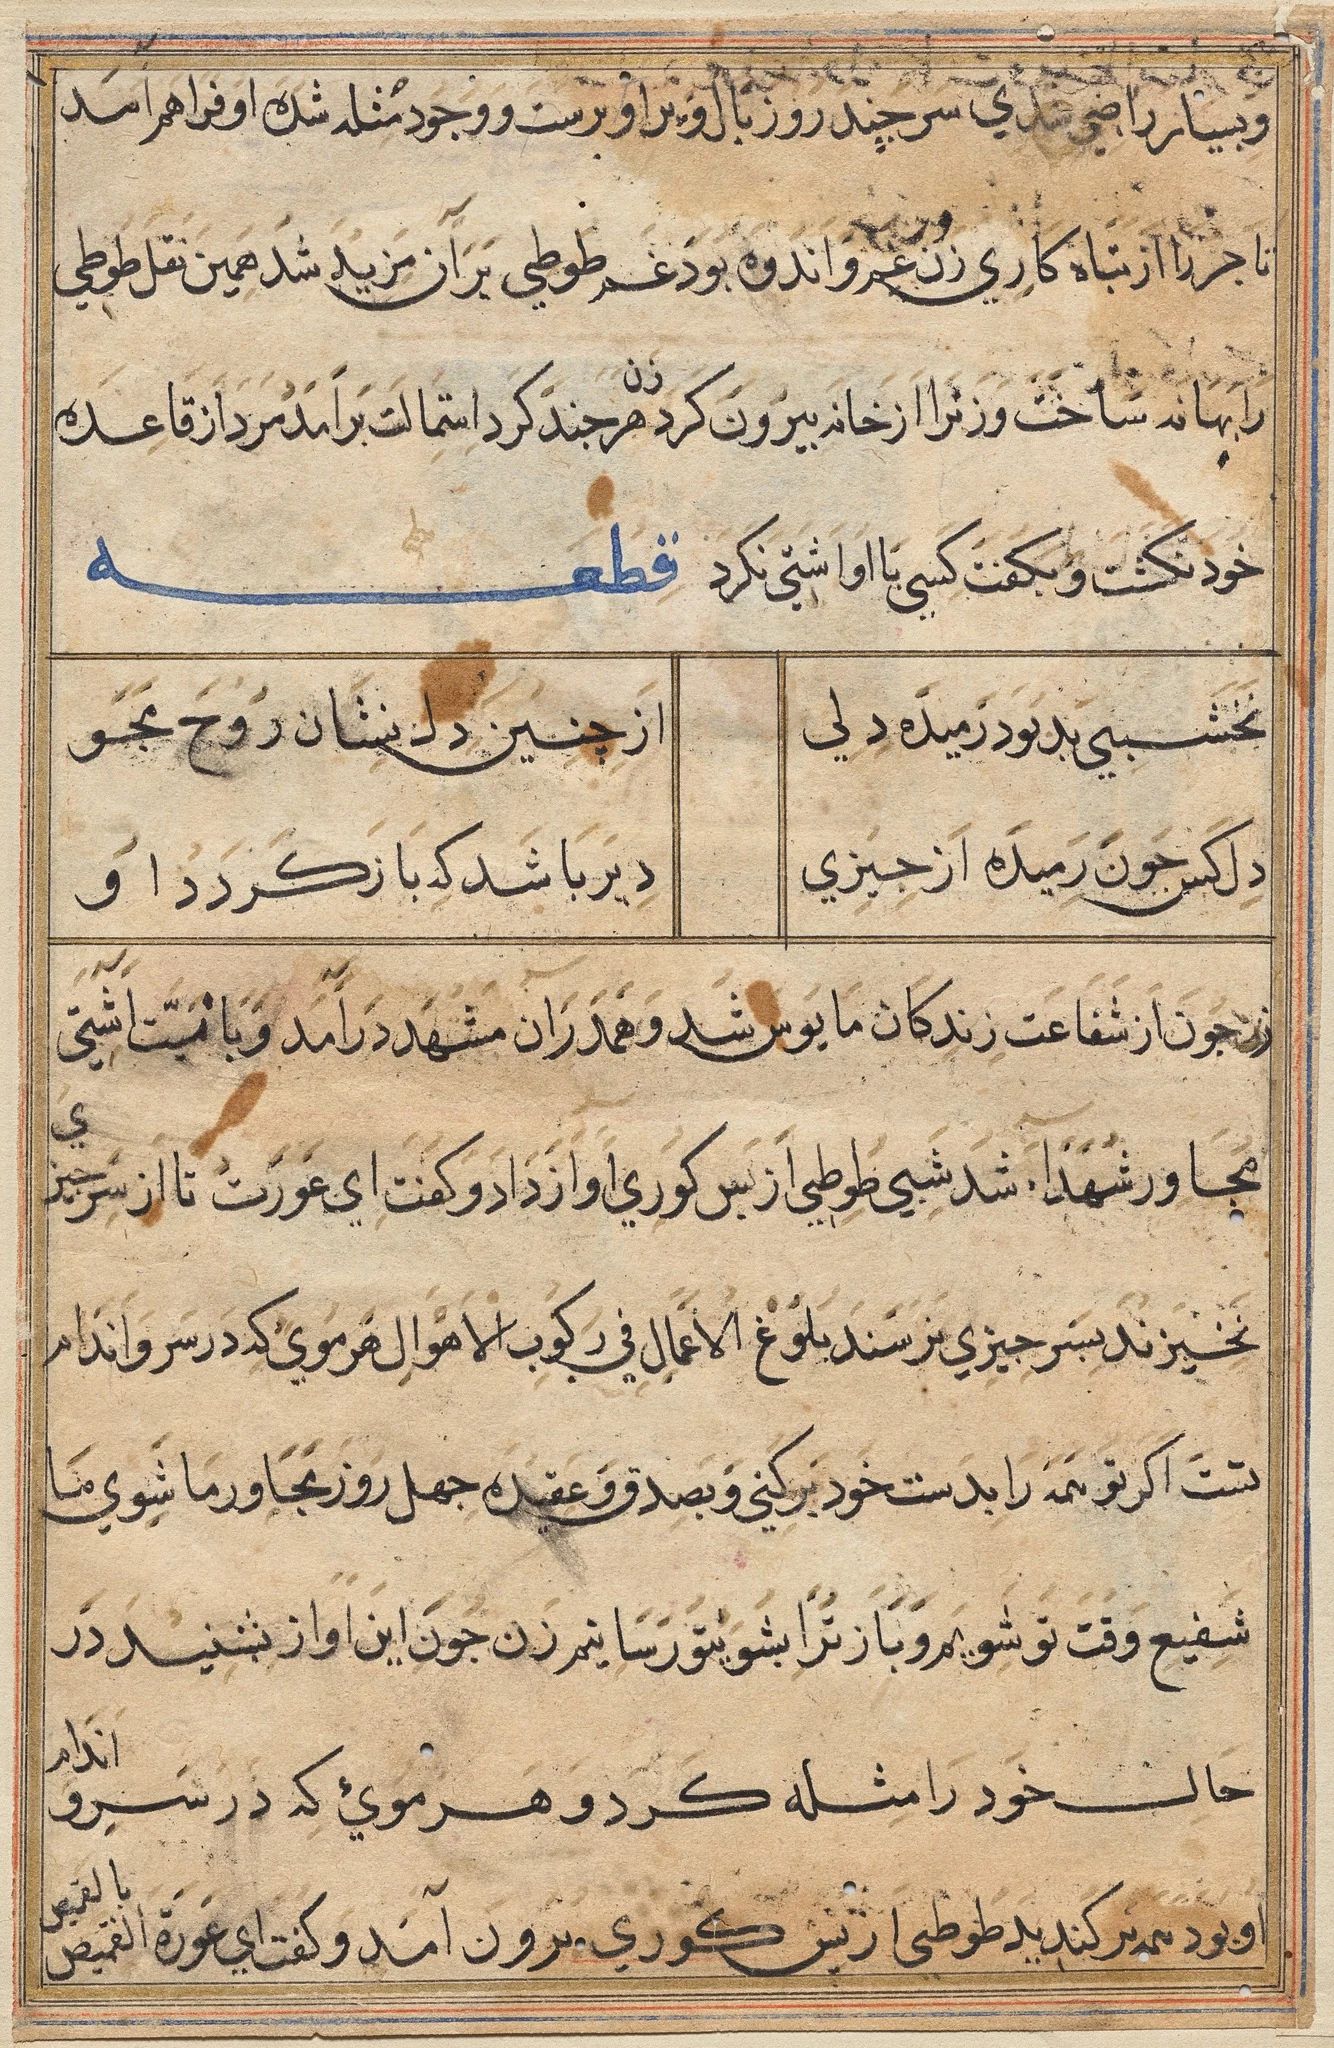 و بسیار راضی شدی سر چند روز بال و پر او برست و وجود مثله شده او فراهم آمد
تاجر را از تباه کاری زن غم و اندوه بود غم طوطی بر آن مزید شد همین نقل طوطی
را بهانه ساخت و زنرا از خانه بیرون کرد زن هر جند کرد استمالت برآمد مرد از قاعده
خود نکشت و بکفت کسی با او آشتی نکرد قطعه
نخشبی بد بود رمیده دلی از چنین دل نشان روح مجو
دل کس جون رمیده از جیزی دیر باشد که باز کردد او
زن جون از شفاعت زندکان مایوس شد و همدران مشهد درآمد و با میت آشتی
مجاور شهدا شد شبی طوطی از بس کوری آواز داد و کفت ای عورت تا از سر جیزی
نخیزند بسر جیزی نرسند بلوغ الاعمال فی رکوب الاهوال هر موی که در سر و اندام
تست اکر تو همه را بدست خود برکنی و بصدق و عقیده جهل روز مجاور ما شوی ما
شفیع وقت تو شویم و باز ترا بشوی تو رسانیم زن جون این آواز بشنید در
حال خود را مثله کرد و هر موی که در سر و اندام
او بود همه برکندید طوطی از پس کوری برون آمد و کفت ای عورة القمیص بالقمیص